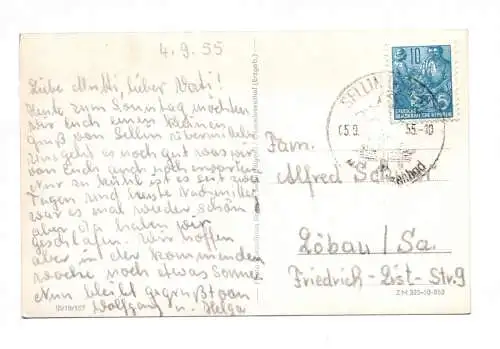 4.9.55
Liebe Mutti, lieber Vati!
Heute zum Sonntag möchten
wir Euch einen kleinen
gruß von Sellin übermitteln
uns geht es noch gut was wir
von Euch auch
Nur zu kühl ist es seit zwei
Tagen und heute Nachmittag
war es mal wieder schön
aber da haben wir
geschlafen. Wir hoffen
aber in der kommenden
woche noch etwas Sonne
Nun bleibt gegrüßt von
Wolfgang u. Helga
10
DEUTSCHE
DEMOKRATISCHE REPUBLIK
SELLIN
05.9. 55-10
Fam.
Alfred
Löbau/Sa.
Friedrich-List-Str. 9